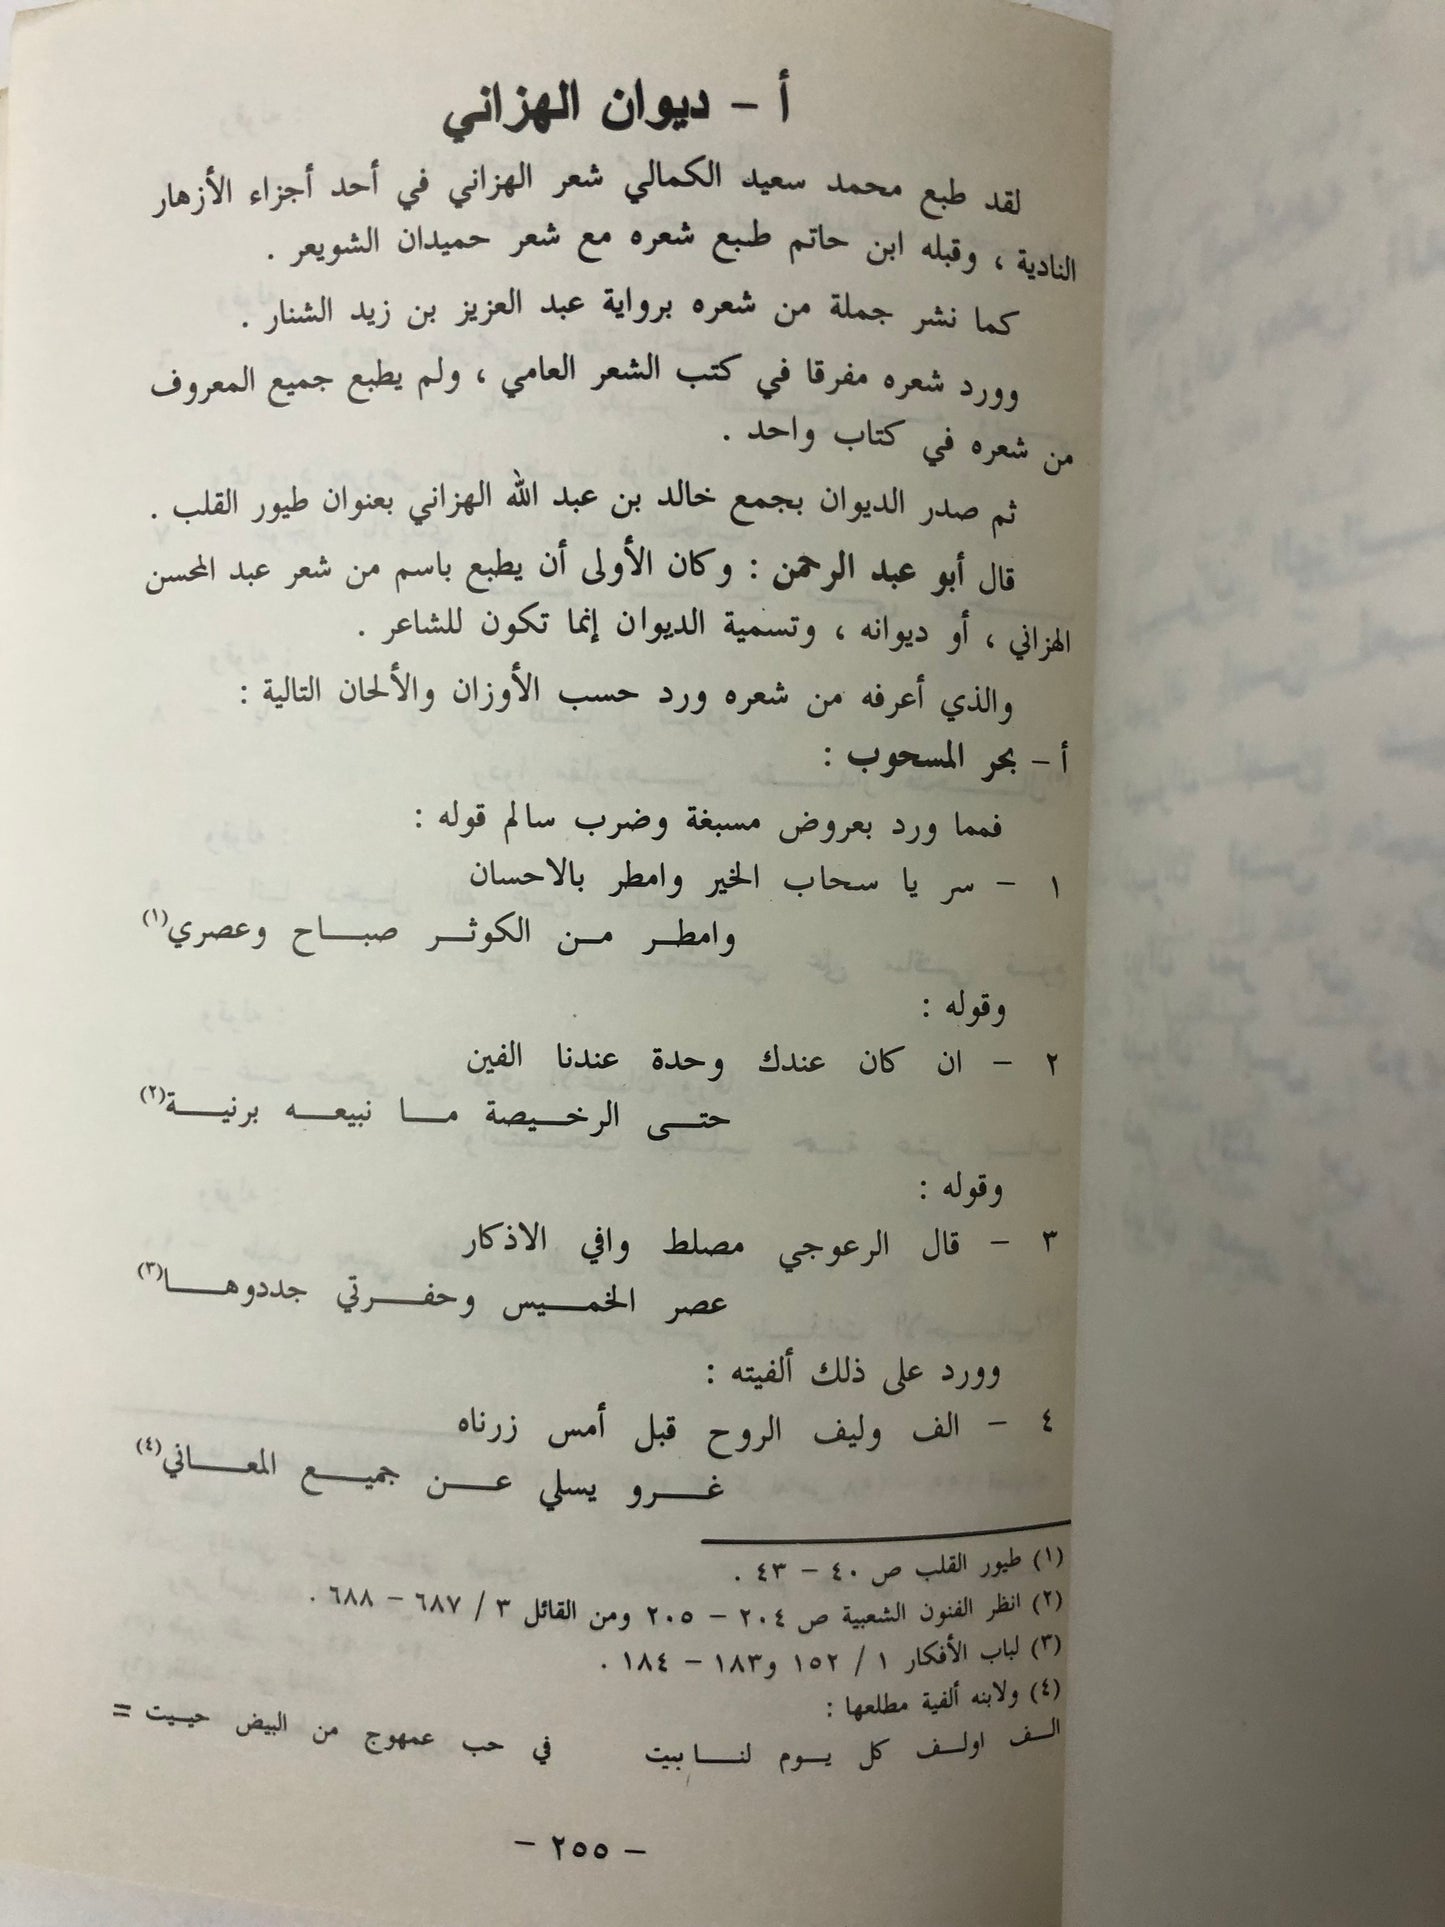 أ – ديوان الهزاني
لقد طبع محمد سعيد الكمالي شعر الهزاني في أحد أجزاء الأزهار
النادية ، وقبله ابن حاتم طبع شعره مع شعر حميدان الشويعر .
كما نشر جملة من شعره برواية عبد العزيز بن زيد الشنار .
وورد شعره مفرقا في كتب الشعر العامي ، ولم يطبع جميع المعروف
من شعره في كتاب واحد .
ثم صدر الديوان بجمع خالد بن عبد الله الهزاني بعنوان طيور القلب .
قال أبو عبد الرحمن : وكان الأولى أن يطبع باسم من شعر عبد المحسن
الهزاني ، أو ديوانه ، وتسمية الديوان إنما تكون للشاعر .
والذي أعرفه من شعره ورد حسب الأوزان والألحان التالية :
أ – بحر المسحوب :
فمما ورد بعروض مسبغة وضرب سالم قوله :
١ – سر يا سحاب الخير وامطر بالاحسان
وامطــر مــن الكوثــر صبــاح وعصري(١)
وقوله :
٢ – ان كان عندك وحدة عندنا الفين
حتــى الرخــيصة مــا نبيعــه برنيــة(٢)
وقوله :
٣ – قال الرعوجي مصلط وافي الاذكار
عصر الخمــيس وحفــرتي جددوهــا(٣)
وورد على ذلك ألفيته :
٤ – الف وليف الروح قبل أمس زرناه
غــرو يسلي عــن جميــع المعــاني(٤)
(١) طيور القلب ص ٤٠ – ٤٣ .
(٢) انظر الفنون الشعبية ص ٢٠٤ – ٢٠٥ ومن القائل ٣ / ٦٨٧ – ٦٨٨ .
(٣) لباب الأفكار ١ / ١٥٢ و١٨٣ – ١٨٤ .
(٤) ولابنه ألفية مطلعها :
الــف اولــف كل يــوم لنــا بيت في حب عمهوج من البيض حيــيت =
– ٢٥٥ –